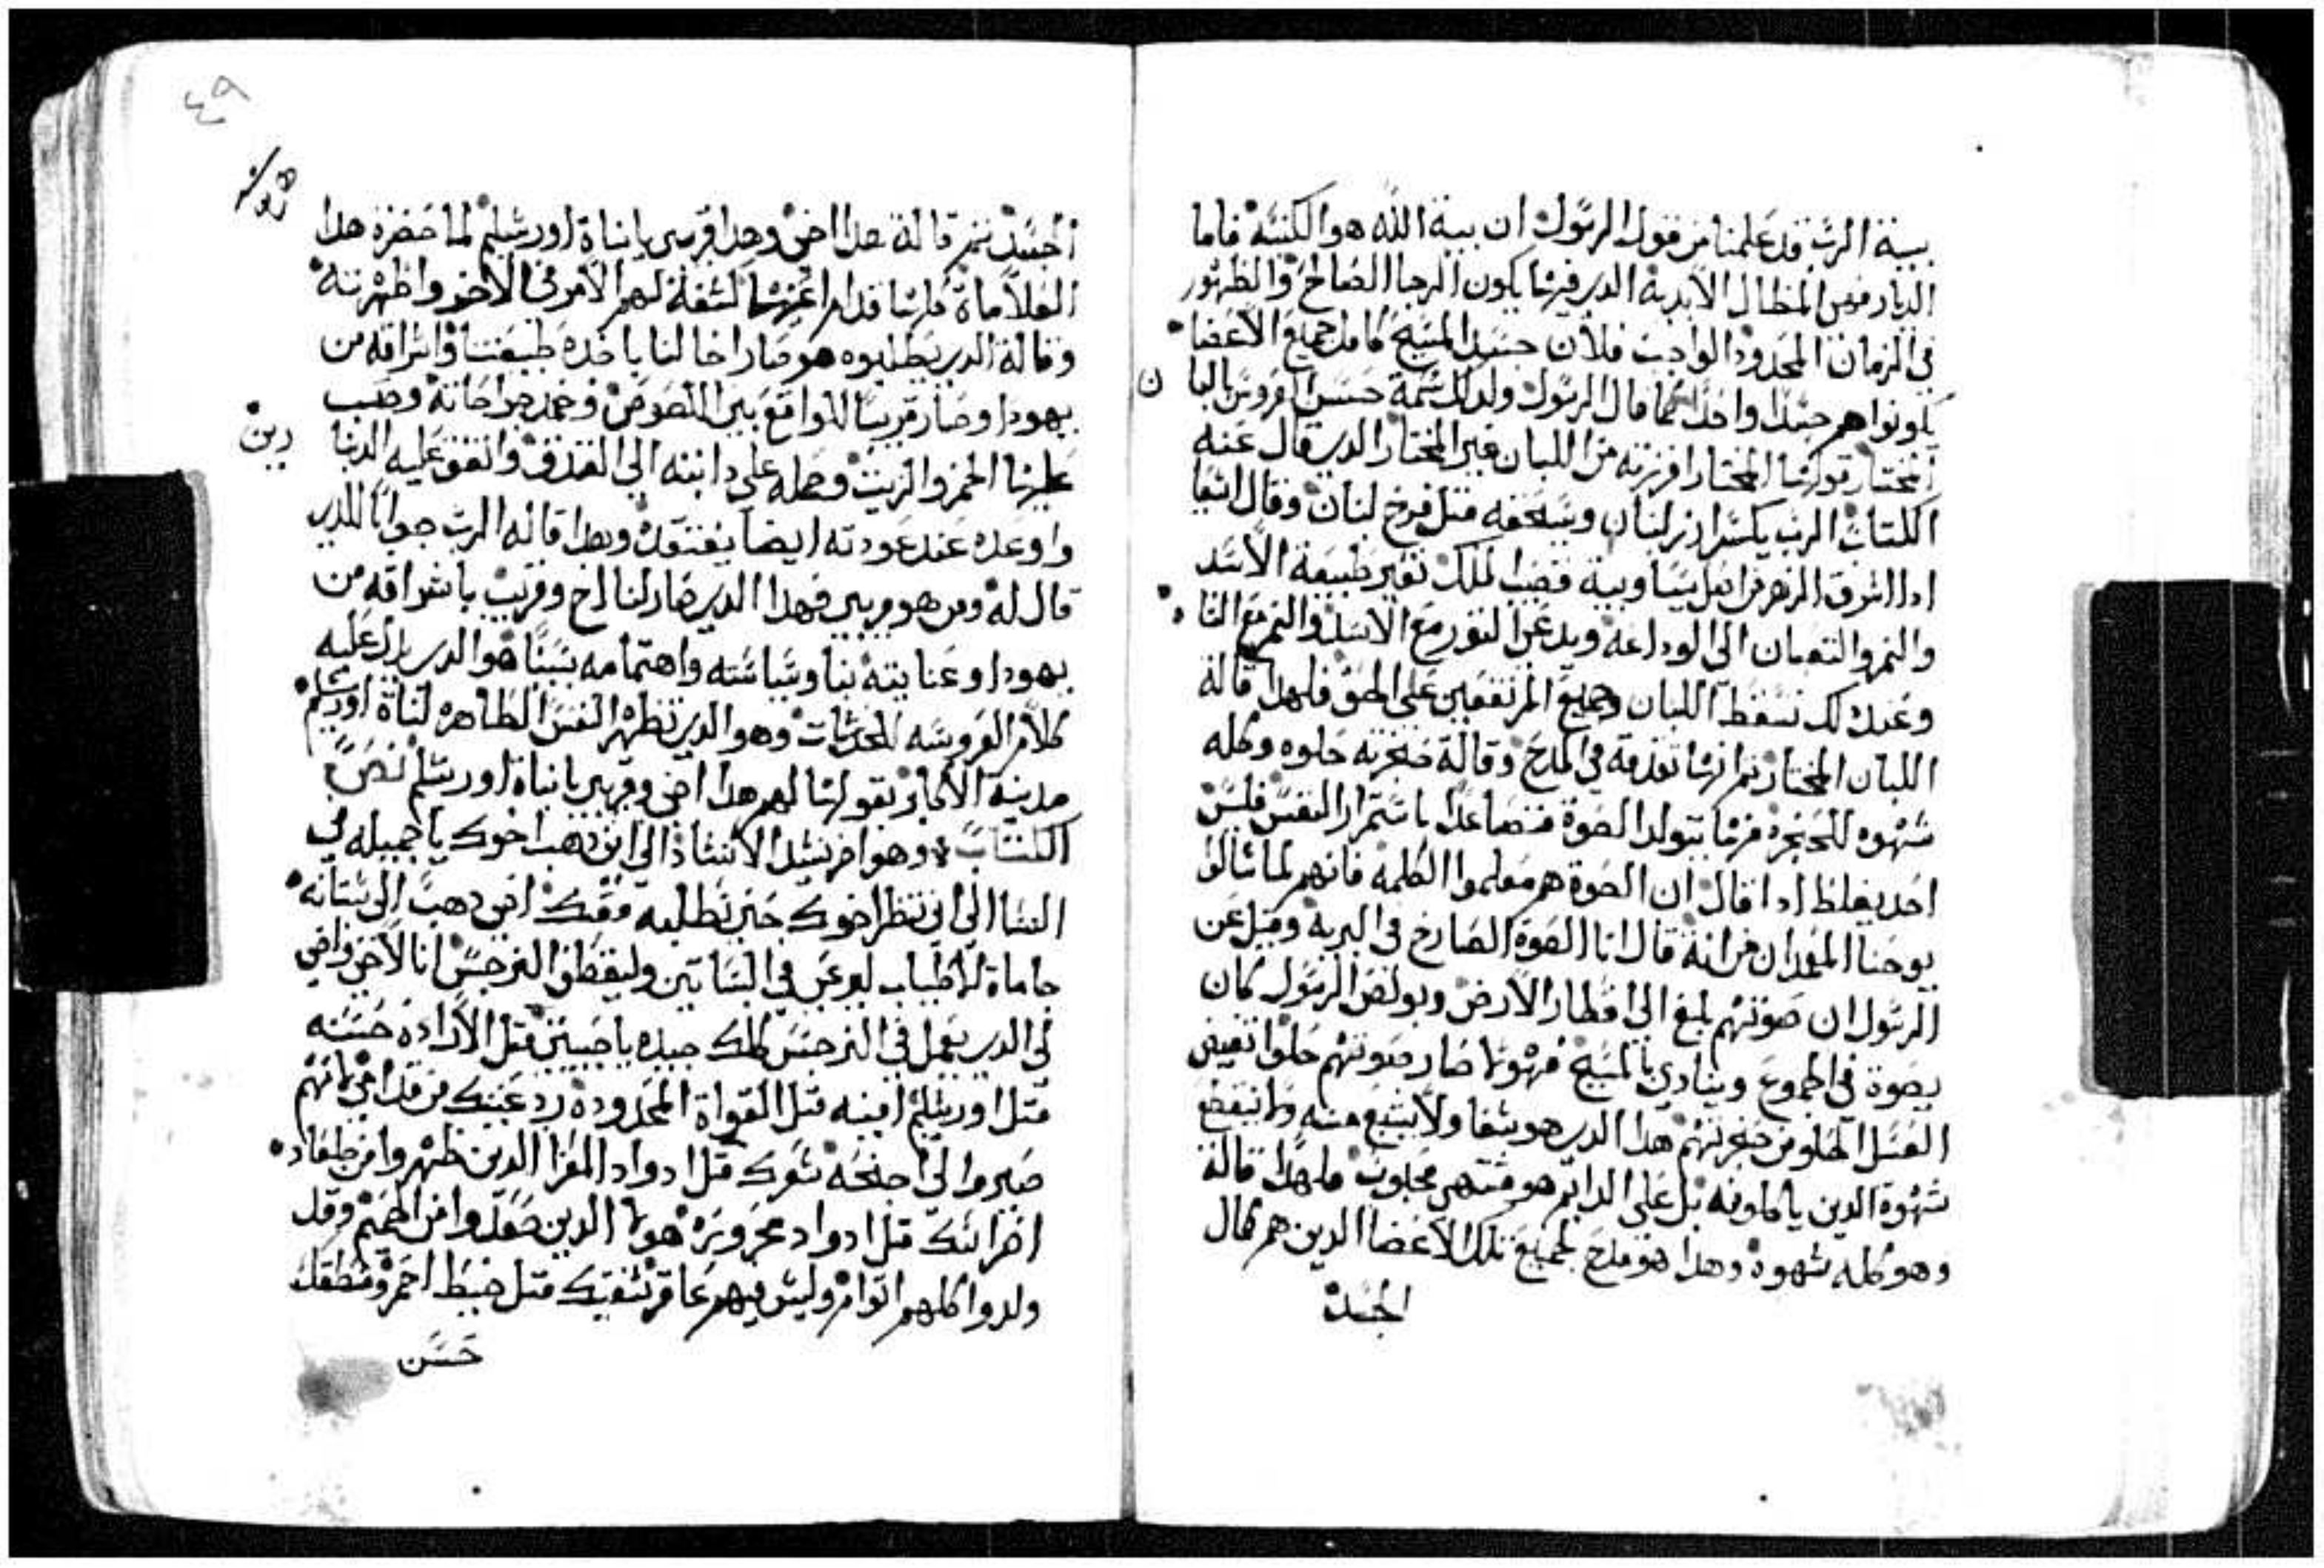 بيتة الرب قد علمنا من قول الرسول ان بيتة الله هو الكنسة فاما
الديار فهي المظال الابدية الدي فيها يكون الرجا الصالح والظهور
في الزمان المحدود الواجب فلان جسد المسيح كامل جميع الاعضا
يكونوا هم جسدا واحدا كما قال الرسول ولدلك شمة حسن العروس باللبا ن
المختار قولها المختار افرزته من اللبان غير المختار الدي قال عنه
الكتاب الرب يكسر ارز لبنان ويسحقه متل فرخ لبنان وقال اشعيا
ادا اشرق الزهر من اصل يسا وبية قضيب الملك تغير طبيعة الاسد
والنمر والتعبان الى الوداعة ويدعي التور مع الاسد والنمر مع
وعند دلك تسقط اللبان وجميع المرتفعين على الحق فلهدا قالة
اللبان المختار ثم انها تعدمه في المدح وقالة حنجرته حلوه وكله
شهوه للحنجره فيها يتولد الصوة متصاعدا باستمرار النفس فليس
احد يغلط ادا قال ان الصوة هم معلموا الكلمة فانهم لما سالو
يوحنا المعمدان من انة قال انا الصوة الصارخ في البرية وقيل عن
الرسول ان صوتهم بلغ الي اقطار الارض وبولص الرسول كان
يصوة في الجموع وينادي بالمسيح فهولا صار صوتهم حلوا تفيض
العسل الحلو من حنجرتهم هدا الدي هو شفا ولا يشبع منه ولا تنقطع
شهوة الدين ياكلونه بل على الدايم هو مشتهى محبوب فلهدا قالة
وهو كله شهوه وهدا هو مدح لجميع تلك الاعضا الدين هم كمال
الجسد
٤٩
الجسد تم قالة هدا اخي وهدا قريبي يا بناة اورشليم لما حضره هدا
العلاماة كلها قدام اعينها كشفة لهم الامر في الاخر واظهرته
وقالة الدي تطلبوه هو صار اخا لنا باخده طبيعتنا واشراقه من
يهودا وصار قريبا للواقع بين اللصوص وضمد جراحاته وصب
عليها الخمر والزيت وحمله على دابته الى الفندق وانفق عليه الدينا دين
واوعده عند عودته ايضا يفتقده وهدا قاله الرب جوابا للدي
قال له ومن هو قريبي فهدا الدي صار لنا اخ وقريب باشراقه من
يهودا وعنايته بنا وسياسته واهتمامه بسببنا هو الدي دل عليه
كلام العروسه للمحدثات وهو الدي تظهر النفس الطاهره لبناة اورشليم
مدينة الابكار بقولها لهم هدا اخي وقريبي يا بناة اورشليم نص
الكتاب وهو اخر نشد الانشاد الي اين دهب اخوك يا جميله في
النسا الي اين نظر اخوك حتى نطلبه معك اخي دهب الى بستانه
جاماة الاطياب ليرعى في البساتين وليقطف النرجس انا لاخي واخي
لي الدي يعمل في النرجس كلك جيده يا حبيبتي متل الاراده حسنه
متل اورشليم امينه متل القواة المحدوده ردي عينيك من قدامي فانهم
صيروا لي اجنحة شعرك متل ادواد المعزا الدين ظهروا من جلعاد
اضراسك متل ادواد مجزوزه هولا الدين صعدوا من الحميم وقد
ولدوا كلهم اتوام وليس فيهم عاقر شفتيك متل خيط احمر ومنطقك
حسن